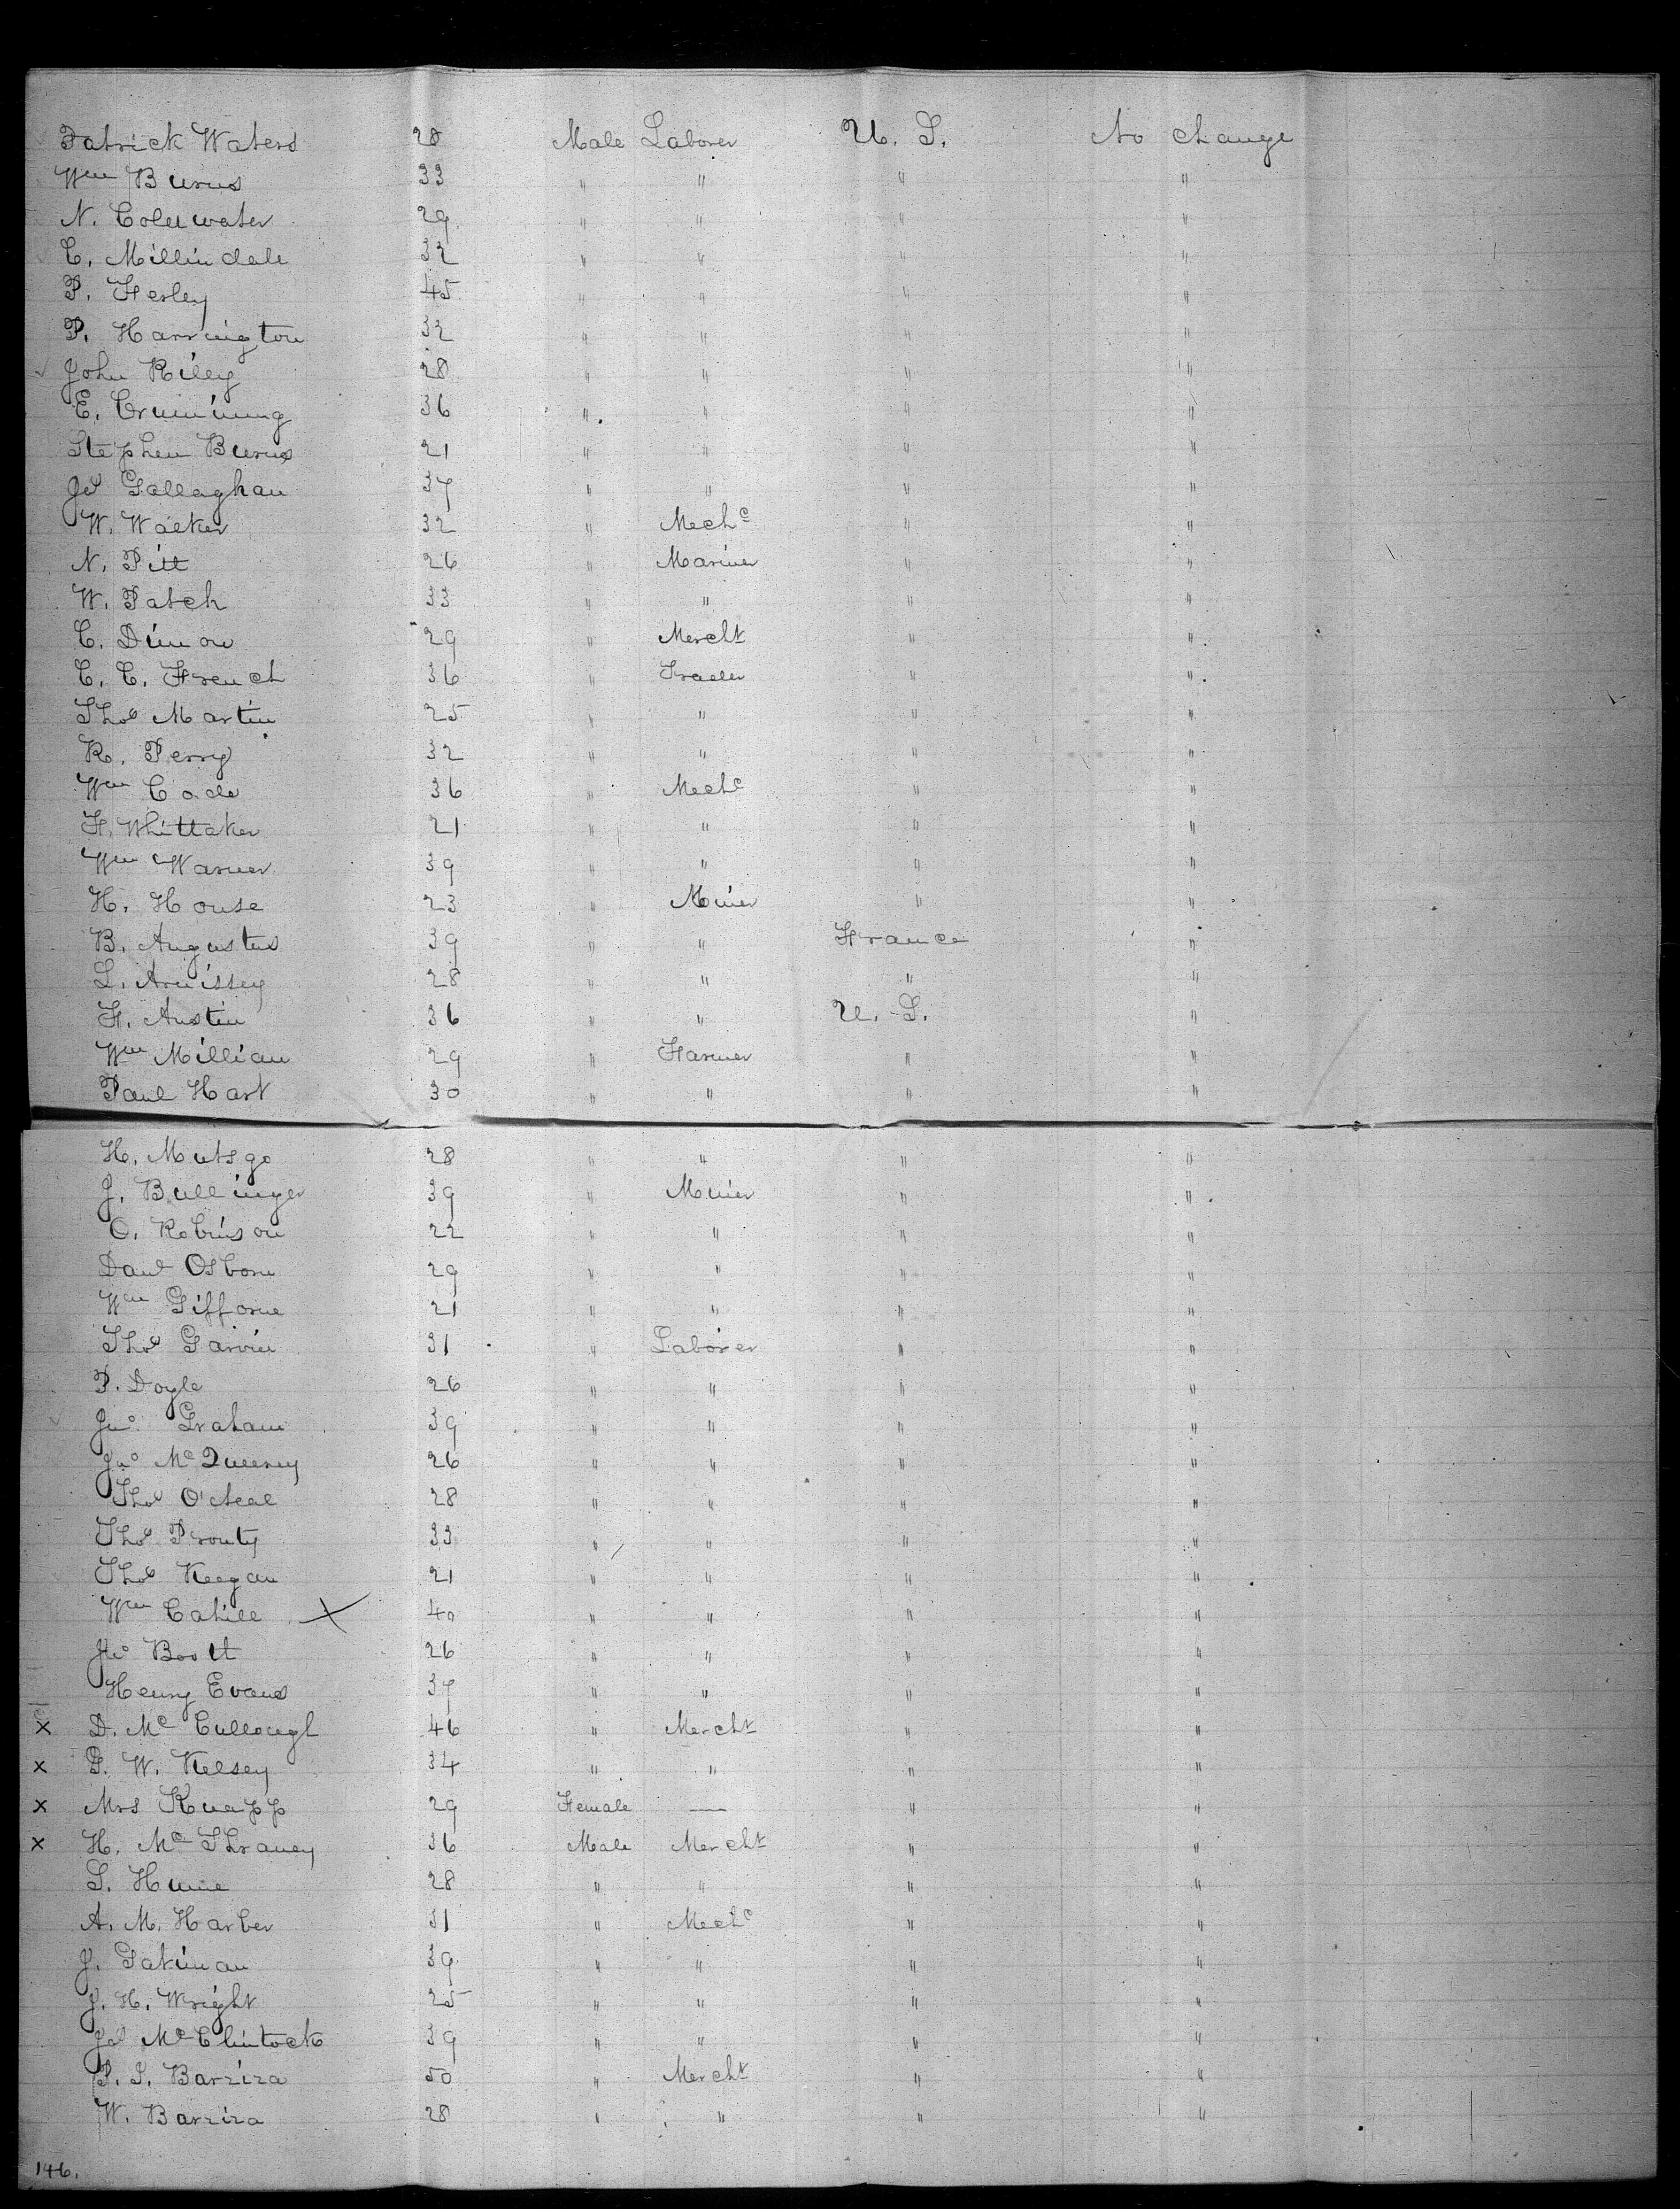 Patrick Waters 28 Male Laborer U. S. No change
Wm Burns 33 " " " "
N. Coldwater 29 " " " "
C. Millindale 32 " " " "
P. Ferley 45 " " " "
P. Harrington 32 " " " "
John Riley 28 " " " "
E. Crumining 36 " " " "
Stephen Burns 21 " " " "
Jas Gallaghan 37 " " " "
W. Walker 32 " Mechc " "
N. Pitt 26 " Mariner " "
W. Patch 33 " " " "
C. Dimon 29 " Mercht " "
C. C. French 36 " Trader " "
Thos Martin 25 " " " "
R. Perry 32 " " " "
Wm Cade 36 " Mechc " "
F. Whittaker 21 " " " "
Wm Warner 39 " " " "
H. House 23 " Miner " "
B. Augustus 39 " " France "
L. Arnissey 28 " " " "
F. Austin 36 " " U. S. "
Wm Millian 29 " Farmer " "
Paul Hart 30 " " " "
H. Mutsgo 28 " " " "
J. Bullinger 39 " Miner " "
O. Robinson 22 " " " "
Danl Osborn 29 " " " "
Wm Gifforne 21 " " " "
Thos Garvin 31 " Laborer " "
P. Doyle 26 " " " "
Jno Graham 39 " " " "
Jno Mc Queeny 26 " " " "
Thos O'Neal 28 " " " "
Thos Prouty 33 " " " "
Thos Keegan 21 " " " "
Wm Cahill X 40 " " " "
Jno Boolt 26 " " " "
Henry Evans 37 " " " "
x D. Mc Cullough 46 " Mercht " "
x G. W. Kelsey 34 " " " "
x Mrs Knapp 29 Female — " "
x H. Mc Shraney 36 Male Mercht " "
S. Hume 28 " " " "
A. M. Harber 31 " Mechc " "
J. Gatiman 39 " " " "
J. H. Wright 25 " " " "
Jas McClintock 39 " " " "
P. S. Barziza 50 " Mercht " "
W. Barziza 28 " " " "
146.